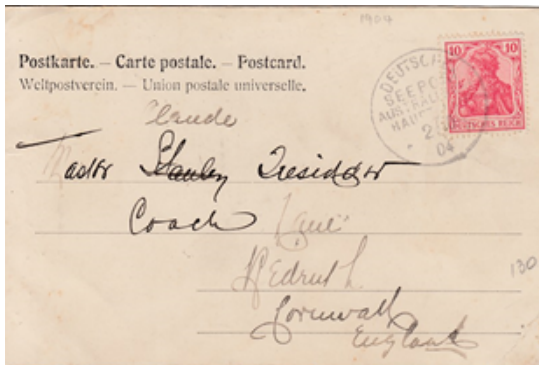 1904
Postkarte. – Carte postale. – Postcard.
Weltpostverein. – Union postale universelle.
10 10
DEUTSCHES REICH
DEUTSCHE
SEEPOST
04
Claude
Master Stanley Tresidder
Coach Lane
Redruth
Cornwall
England
130